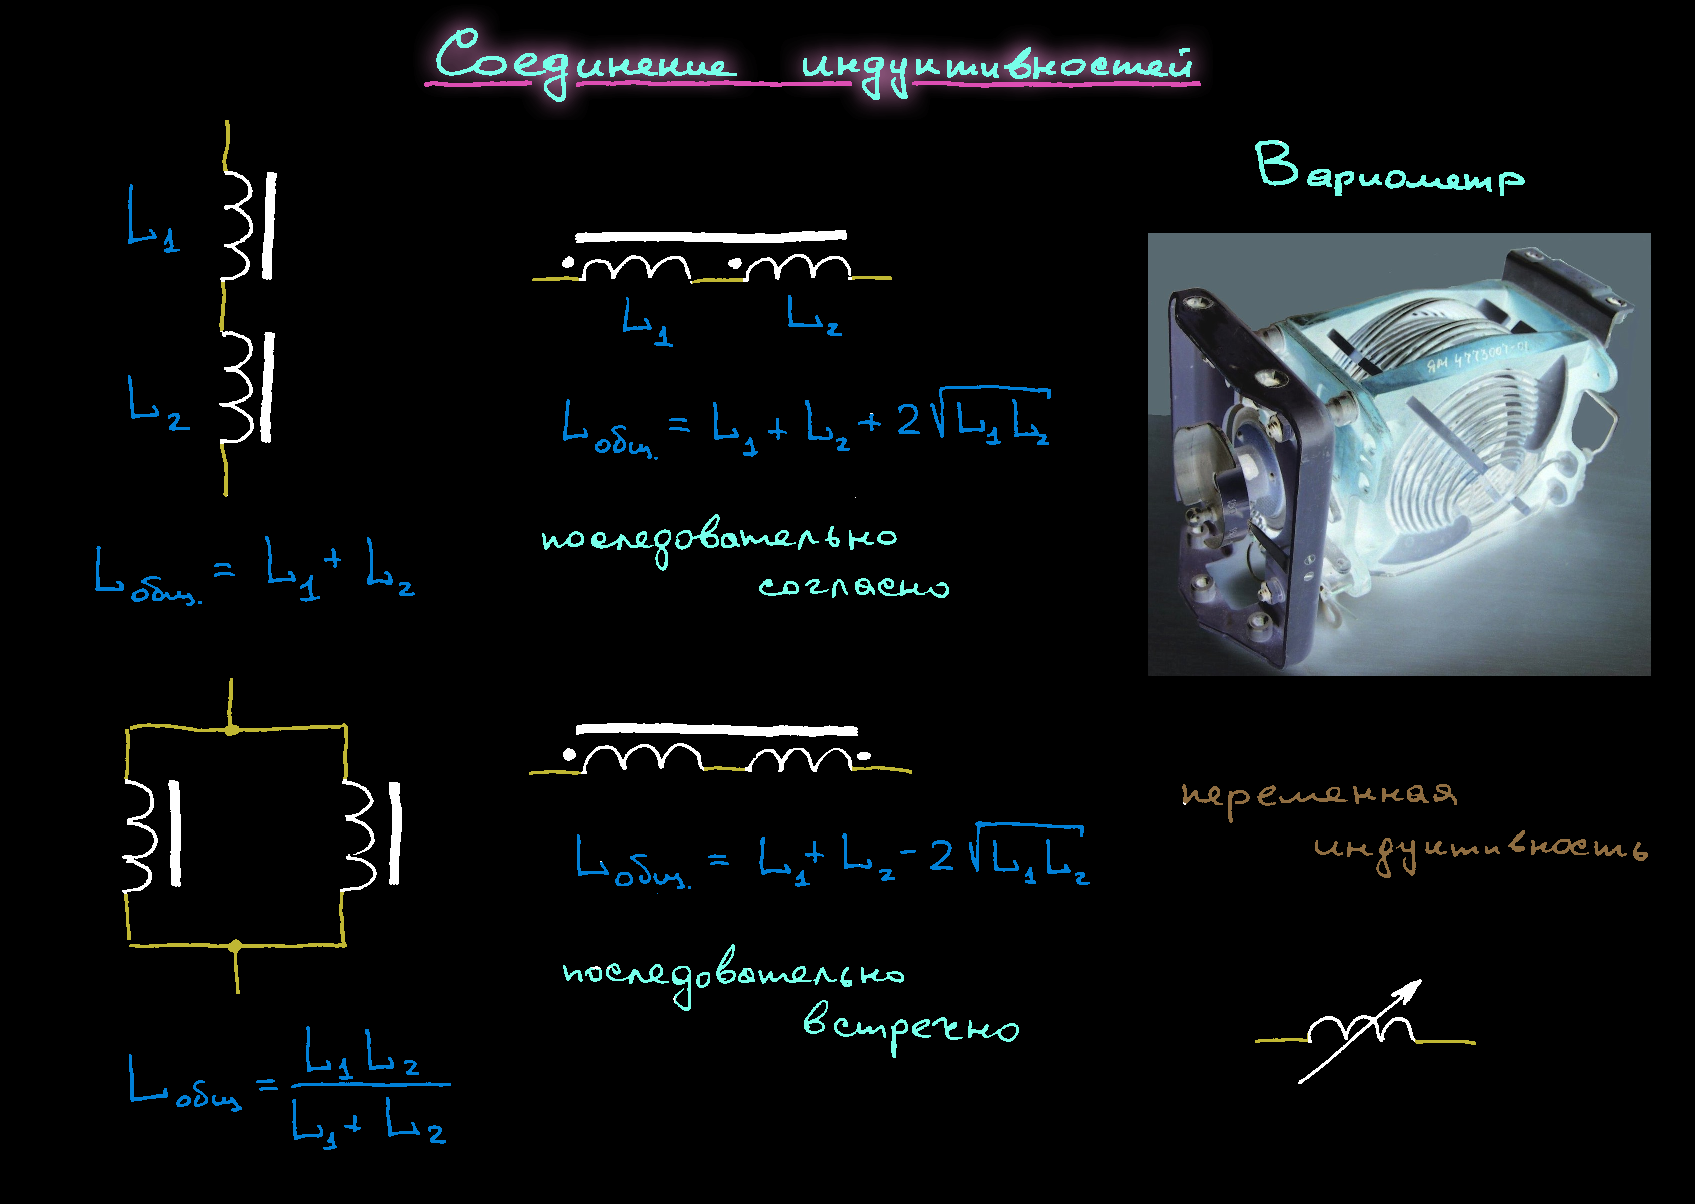 Соединение индуктивностей
L₁
L₂
Lобщ. = L₁ + L₂
Lобщ = L₁ L₂ / L₁ + L₂
L₁ L₂
Lобщ. = L₁ + L₂ + 2√L₁ L₂
последовательно
согласно
Lобщ. = L₁ + L₂ - 2√L₁ L₂
последовательно
встречно
Вариометр
ЯМ 4773007-01
переменная
индуктивность